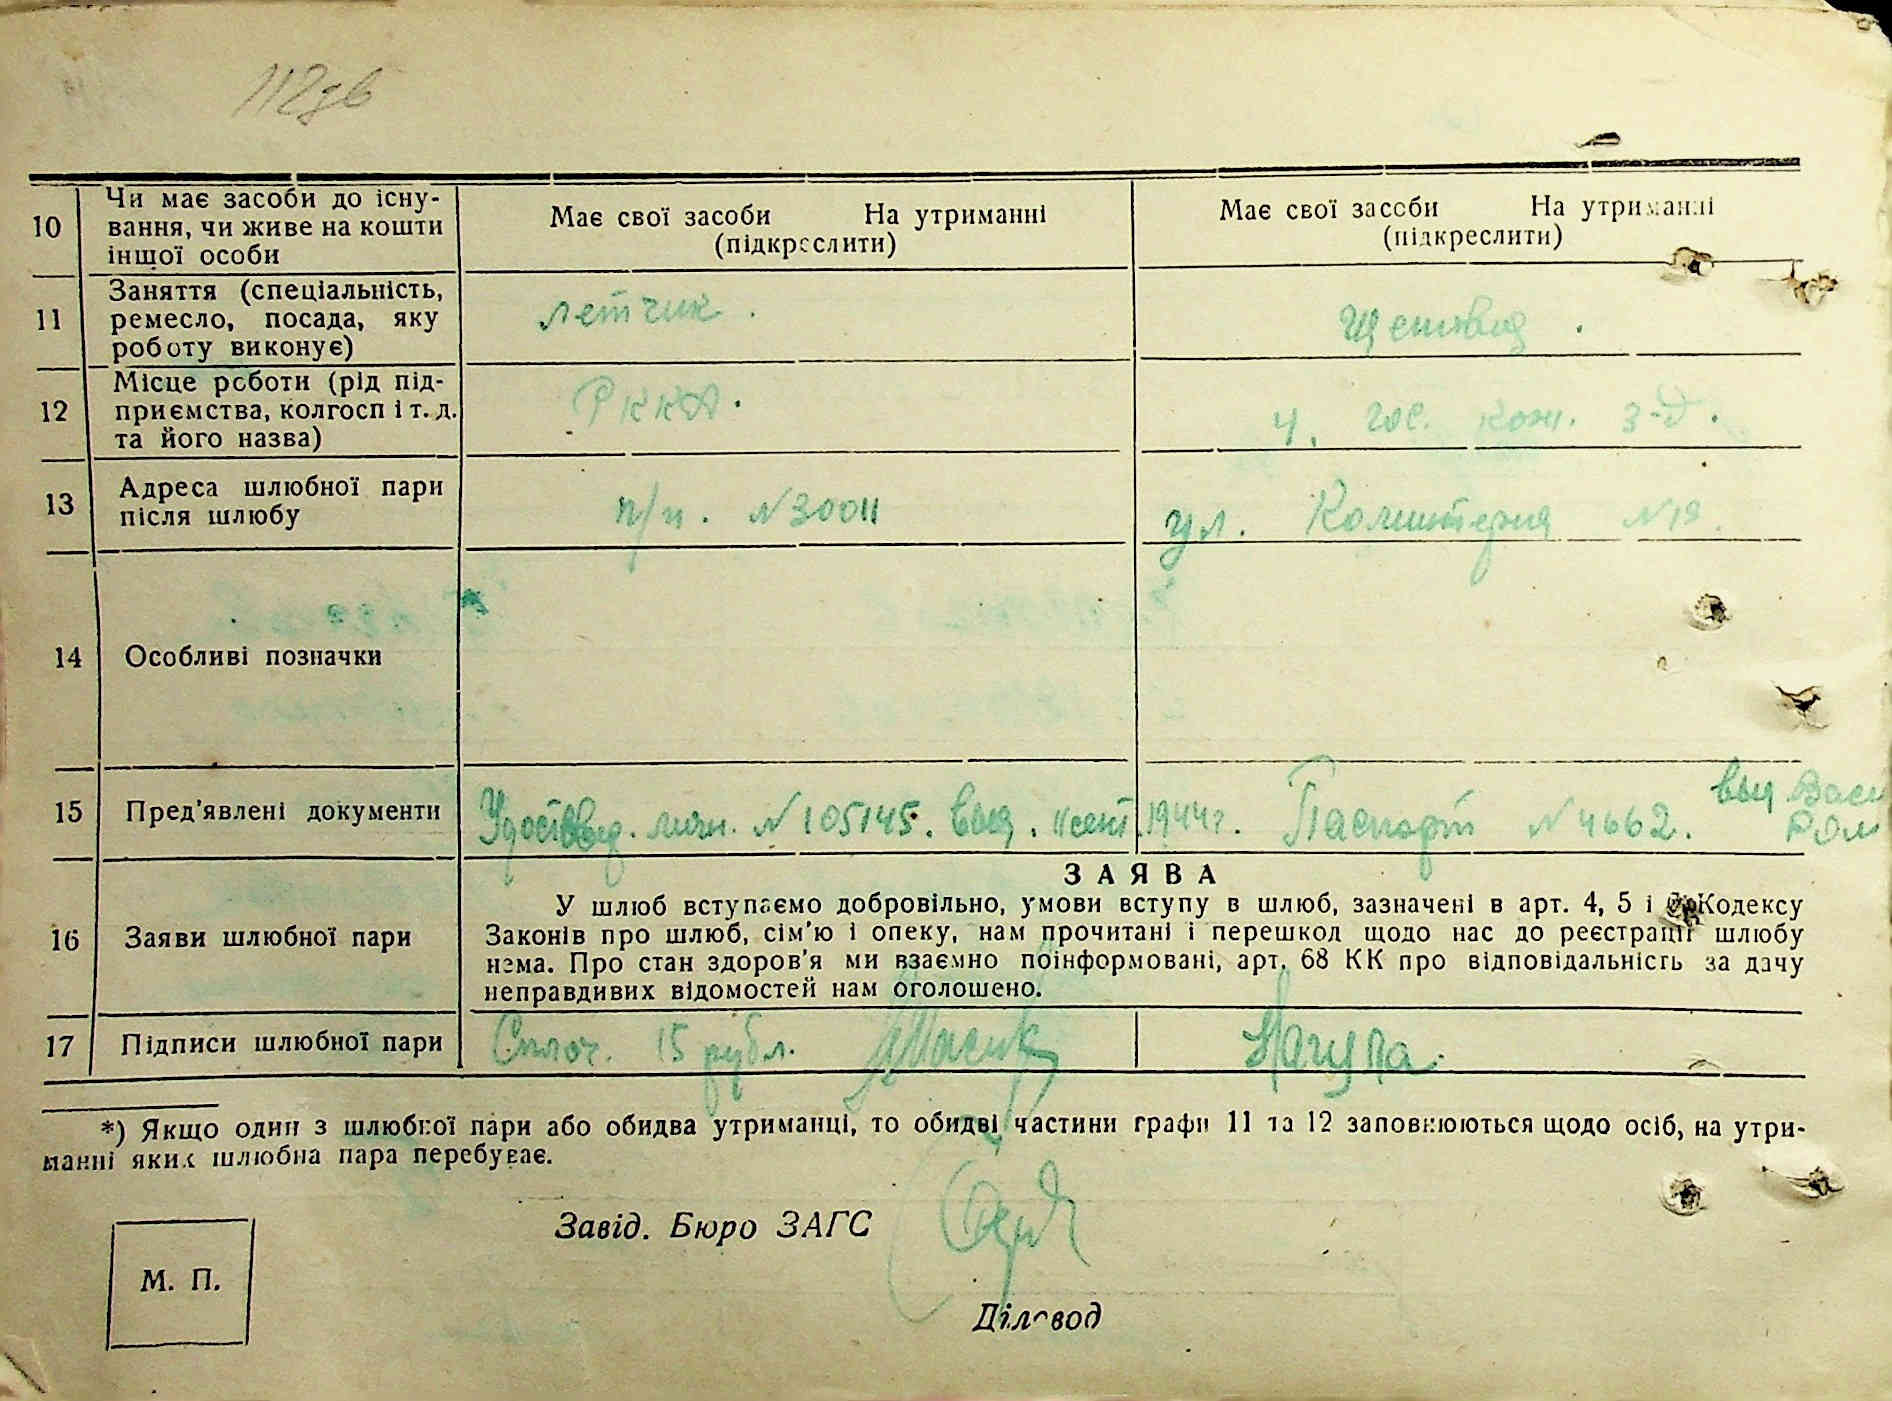 112 дв
10 Чи має засоби до існування, чи живе на кошти іншої особи
Має свої засоби На утриманні
(підкреслити)
Має свої засоби На утриманні
(підкреслити)
11 Заняття (спеціальність, ремесло, посада, яку роботу виконує)
летчик.
12 Місце роботи (рід підприємства, колгосп і т. д. та його назва)
РККА.
4. гос. кож. з-д.
13 Адреса шлюбної пари після шлюбу
п/п. № 30011
ул. Коминтерна № 19.
14 Особливі позначки
15 Пред'явлені документи
Удостовид. личн. № 105145. выд. 11 сент. 1944 г.
Паспорт № 4662. выд
16 Заяви шлюбної пари
ЗАЯВА
У шлюб вступаємо добровільно, умови вступу в шлюб, зазначені в арт. 4, 5 і Кодексу
Законів про шлюб, сім'ю і опеку, нам прочитані і перешкод щодо нас до реєстрації шлюбу
нема. Про стан здоров'я ми взаємно поінформовані, арт. 68 КК про відповідальність за дачу
неправдивих відомостей нам оголошено.
17 Підписи шлюбної пари
Сплоч. 15 рубл.
*) Якщо один з шлюбної пари або обидва утриманці, то обидві частини графи 11 та 12 заповнюються щодо осіб, на утри-
манні яких шлюбна пара перебуває.
Завід. Бюро ЗАГС
М. П.
Діловод